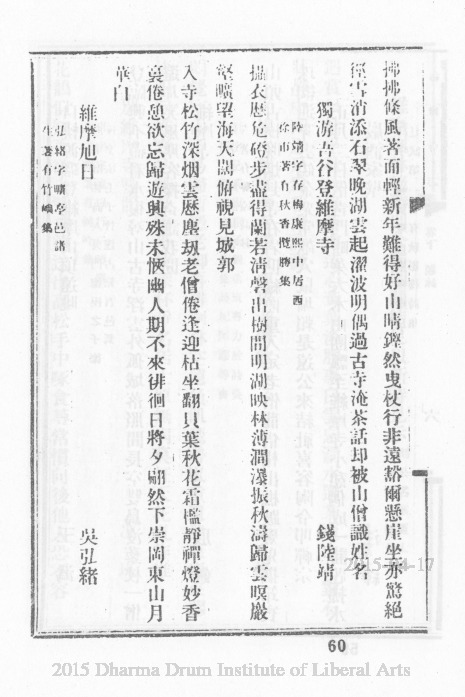 拂拂條風著面輕新年難得好山晴鏗然曳杖行非遠豁爾懸崖坐亦驚絕
徑雪消添石翠晚湖雲起濯波明偶過古寺淹茶話却被山僧識姓名
獨游吾谷登維摩寺
錢陸靖
陸靖字存梅康熙中居西
徐市著有秋香攬勝集
攝衣歷危磴步盡得蘭若清磬出樹間明湖映林薄澗瀑振秋濤歸雲暝巖
壑曠望海天闊俯視見城郭
入寺松竹深烟雲歷塵劫老僧倦逢迎枯坐翻貝葉秋花霜檻靜禪燈妙香
裛倦憩欲忘歸遊興殊未愜幽人期不來徘徊日將夕翩然下崇岡東山月
華白
維摩旭日
吳弘緒
弘緒字曠亭邑諸
生著有竹嶼集
60
2015-04-17
2015 Dharma Drum Institute of Liberal Arts